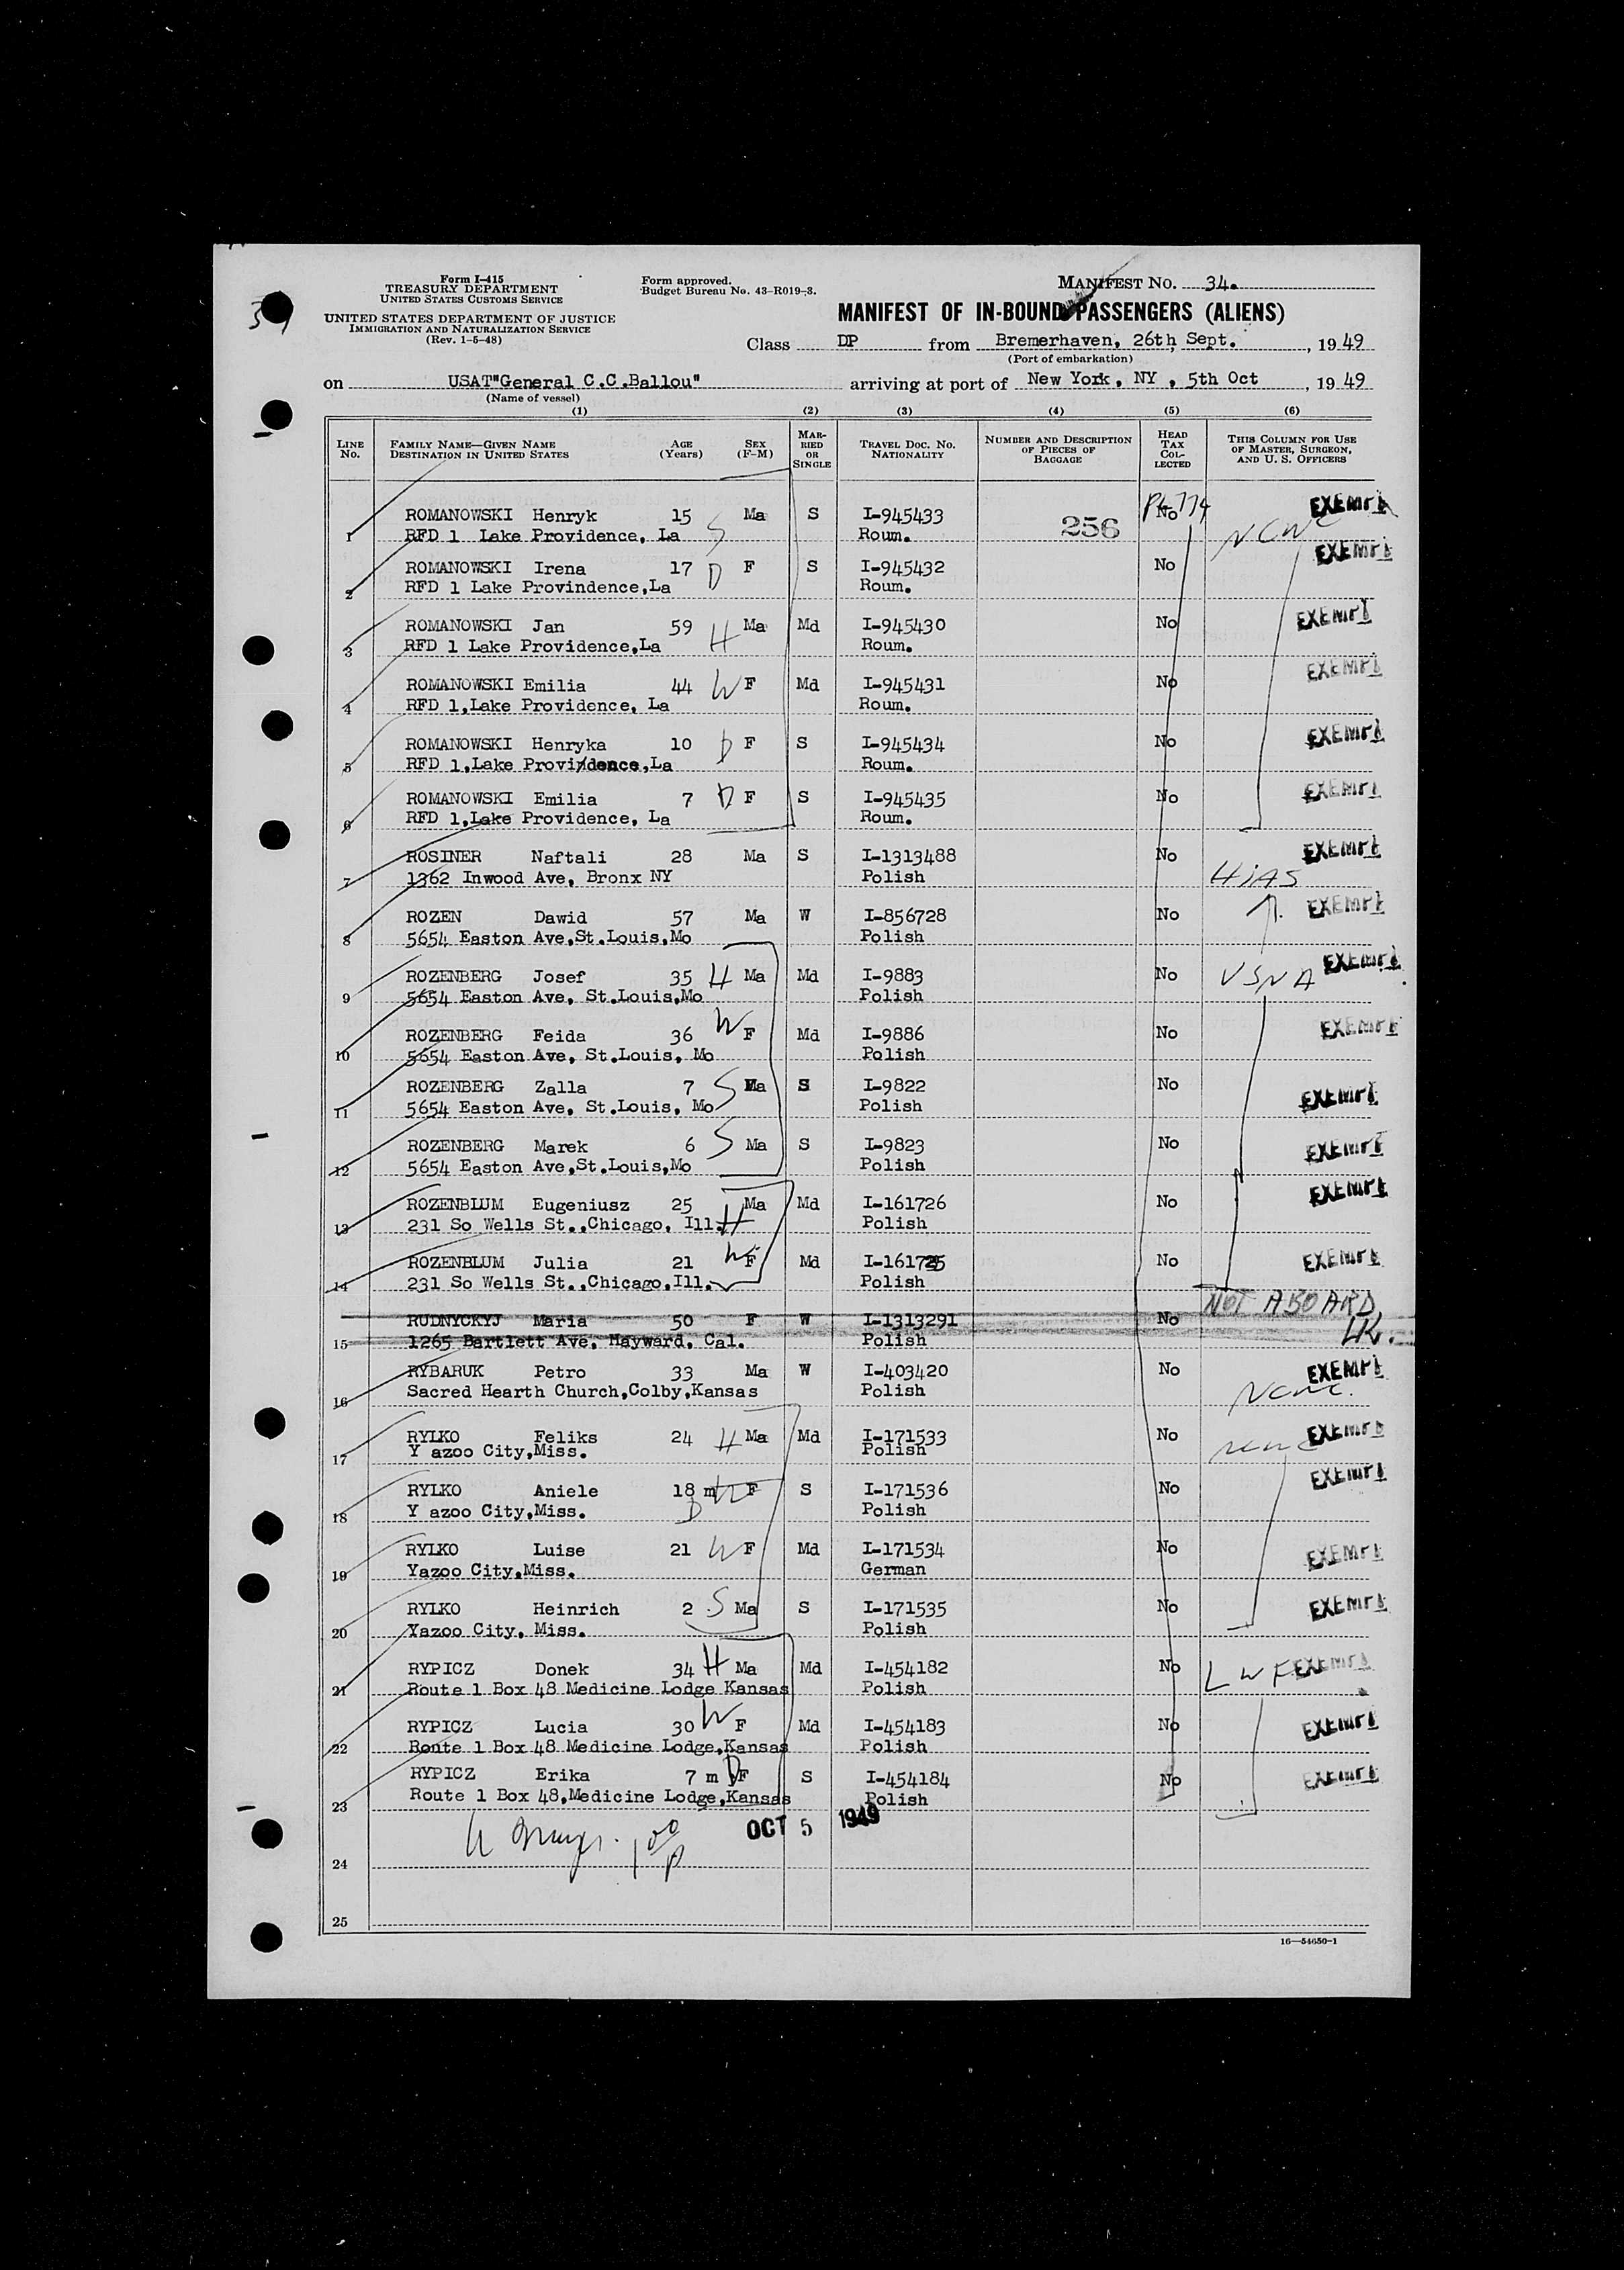 Form I-415
TREASURY DEPARTMENT
UNITED STATES CUSTOMS SERVICE
UNITED STATES DEPARTMENT OF JUSTICE
IMMIGRATION AND NATURALIZATION SERVICE
(Rev. 1-5-48)
Form approved.
Budget Bureau No. 43-R019-3.
MANIFEST NO. 34.
MANIFEST OF IN-BOUND PASSENGERS (ALIENS)
Class DP from Bremerhaven, 26th Sept. , 1949
(Port of embarkation)
on USAT"General C.C.Ballou" arriving at port of New York, NY , 5th Oct , 1949
(Name of vessel)
(1) (2) (3) (4) (5) (6)
LINE No. FAMILY NAME—GIVEN NAME DESTINATION IN UNITED STATES AGE (Years) SEX (F-M) MARRIED OR SINGLE TRAVEL DOC. NO. NATIONALITY NUMBER AND DESCRIPTION OF PIECES OF BAGGAGE HEAD TAX COLLECTED THIS COLUMN FOR USE OF MASTER, SURGEON, AND U. S. OFFICERS
ROMANOWSKI Henryk 15 S Ma S I-945433 256 No NCWC EXEMPT
1 RFD 1 Lake Providence, La Roum.
ROMANOWSKI Irena 17 D F S I-945432 No EXEMPT
2 RFD 1 Lake Provindence,La Roum.
ROMANOWSKI Jan 59 H Ma Md I-945430 No EXEMPT
3 RFD 1 Lake Providence,La Roum.
ROMANOWSKI Emilia 44 W F Md I-945431 No EXEMPT
4 RFD 1,Lake Providence, La Roum.
ROMANOWSKI Henryka 10 D F S I-945434 No EXEMPT
5 RFD 1,Lake Providence,La Roum.
ROMANOWSKI Emilia 7 D F S I-945435 No EXEMPT
6 RFD 1,Lake Providence, La Roum.
ROSINER Naftali 28 Ma S I-1313488 No HIAS EXEMPT
7 1362 Inwood Ave, Bronx NY Polish
ROZEN Dawid 57 Ma W I-856728 No EXEMPT
8 5654 Easton Ave,St.Louis,Mo Polish
ROZENBERG Josef 35 H Ma Md I-9883 No USNA EXEMPT
9 5654 Easton Ave, St.Louis,Mo Polish
ROZENBERG Feida 36 W F Md I-9886 No EXEMPT
10 5654 Easton Ave, St.Louis, Mo Polish
ROZENBERG Zalla 7 S Ma S I-9822 No EXEMPT
11 5654 Easton Ave, St.Louis, Mo Polish
ROZENBERG Marek 6 S Ma S I-9823 No EXEMPT
12 5654 Easton Ave,St.Louis,Mo Polish
ROZENBLUM Eugeniusz 25 Ma Md I-161726 No EXEMPT
13 231 So Wells St.,Chicago, Ill. H Polish
ROZENBLUM Julia 21 W F Md I-161725 No EXEMPT
14 231 So Wells St.,Chicago,Ill. Polish
RUDNYCKYJ Maria 50 F W I-1313291 No NOT ABOARD
15 1265 Bartlett Ave, Hayward, Cal. Polish
RYBARUK Petro 33 Ma W I-403420 No EXEMPT
16 Sacred Hearth Church,Colby,Kansas Polish NCWC
RYLKO Feliks 24 H Ma Md I-171533 No NCWC EXEMPT
17 Y azoo City,Miss. Polish
RYLKO Aniele 18 m F S I-171536 No EXEMPT
18 Y azoo City,Miss. D Polish
RYLKO Luise 21 W F Md I-171534 No EXEMPT
19 Yazoo City,Miss. German
RYLKO Heinrich 2 S Ma S I-171535 No EXEMPT
20 Yazoo City, Miss. Polish
RYPICZ Donek 34 H Ma Md I-454182 No LWF EXEMPT
21 Route 1 Box 48 Medicine Lodge Kansas Polish
RYPICZ Lucia 30 W F Md I-454183 No EXEMPT
22 Route 1 Box 48 Medicine Lodge,Kansas Polish
RYPICZ Erika 7 m D F S I-454184 No EXEMPT
23 Route 1 Box 48,Medicine Lodge,Kansas Polish
OCT 5 1949
24
25
16—54650-1